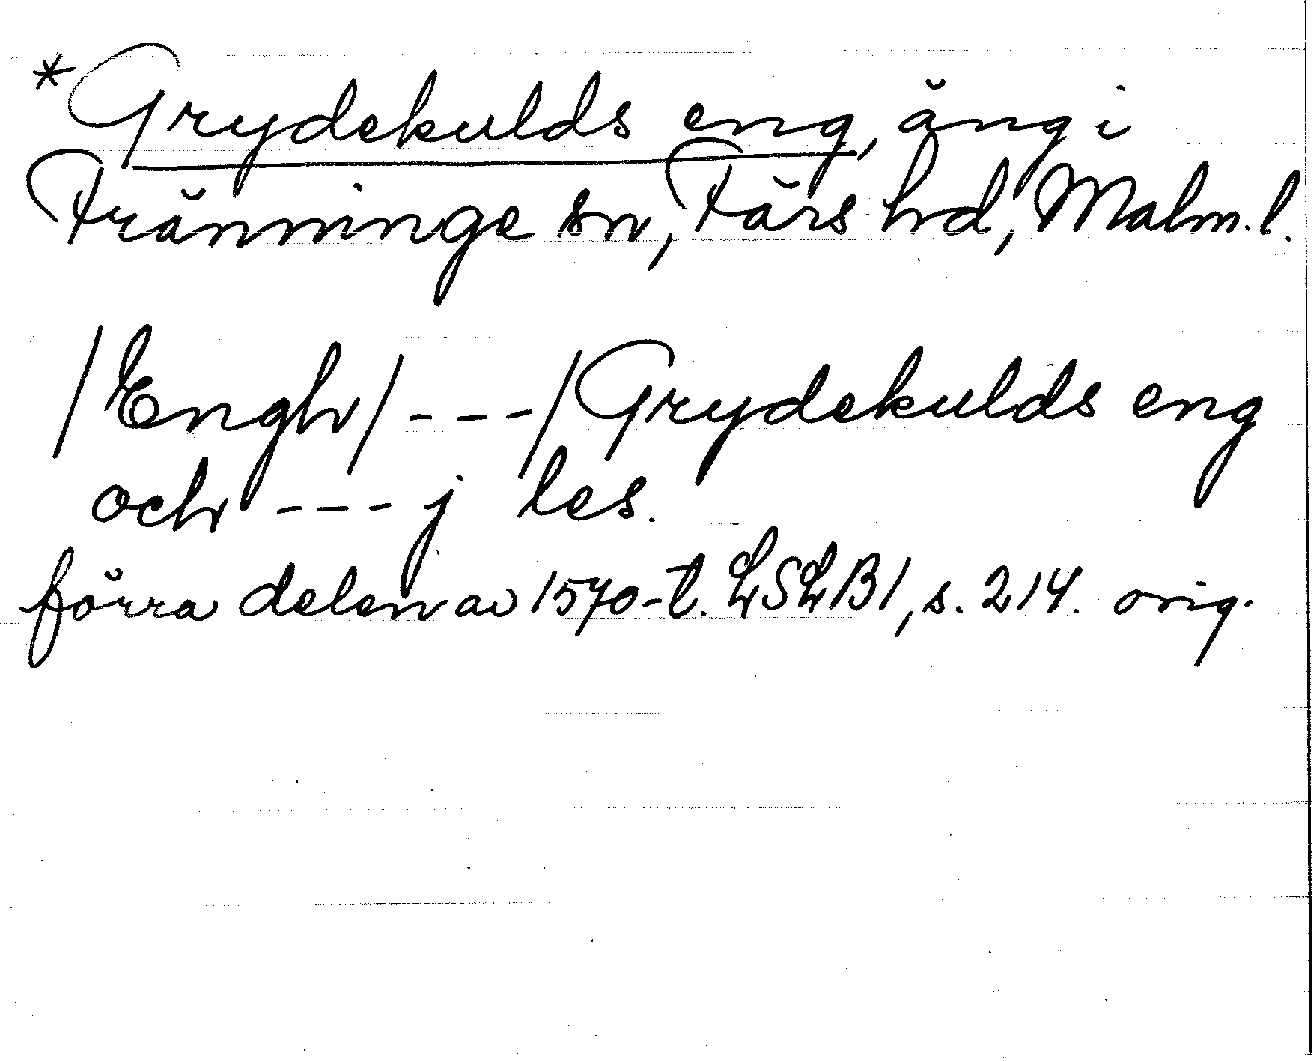 *Grydekulds eng, äng i
Fränninge sn, Färs hd, Malm. l.
/Engh/ --- /Grydekulds eng
och --- j les.
förra delen av 1570-t. LSLB1, s. 214. orig.